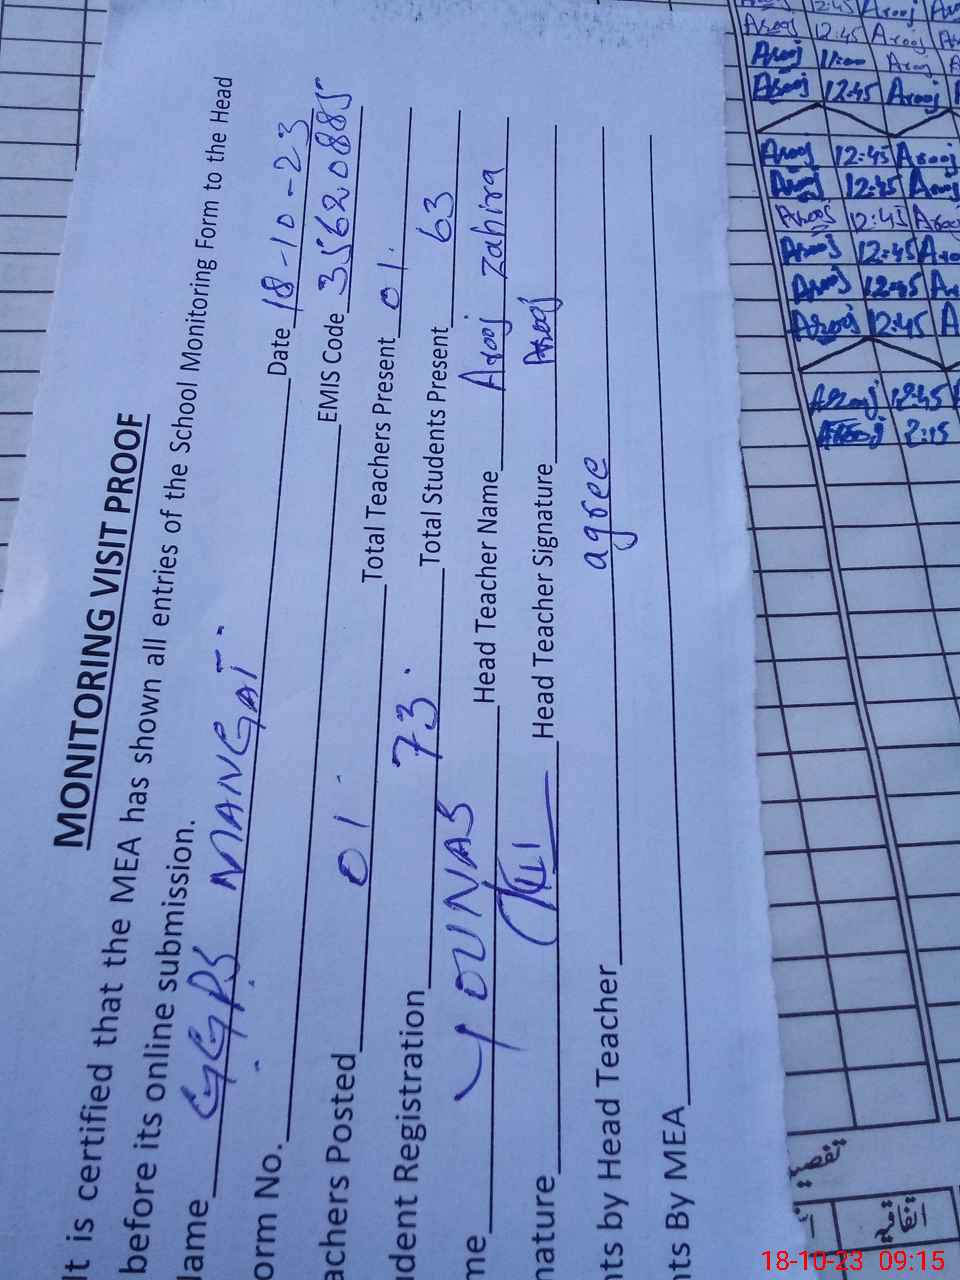 MONITORING VISIT PROOF
It is certified that the MEA has shown all entries of the School Monitoring Form to the Head
before its online submission.
lame GGPS MANGAT. Date 18-10-23
orm No. EMIS Code 35620885
achers Posted 01. Total Teachers Present 01.
udent Registration 73. Total Students Present 63
me YOUNAS Head Teacher Name Arooj zahira
nature Head Teacher Signature Arooj
nts by Head Teacher agree
nts By MEA
12:45 Arooj
Arooj 12:45 Arooj
Arooj 11:00 Arooj
Arooj 12:45 Arooj
Arooj 12:45 Arooj
Arooj 12:45 Arooj
Arooj 12:45 Arooj
Arooj 12:45 Aroo
Arooj 12:45 Ar
Arooj 12:45 A
Arooj 12:45
Arooj 2:15
18-10-23 09:15